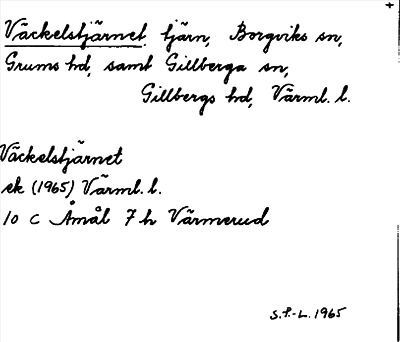 Väckelstjärnet, tjärn, Borgviks sn,
Grums hd, samt Gillberga sn,
Gillbergs hd, Värml. l.
Väckelstjärnet
ek (1965) Värml. l.
10 C Åmål 7 h Värmerud
S.P.-L. 1965